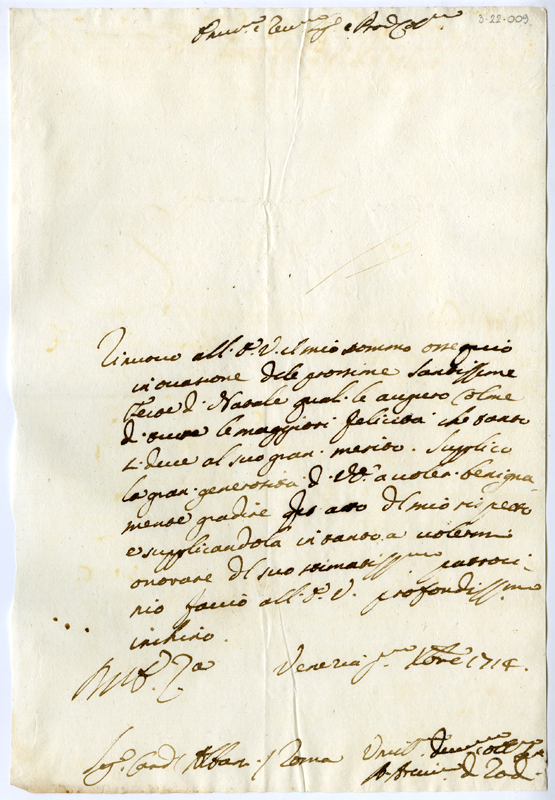 3-22-009
Em.mo e Rev.mo Sig.r e Pron Col.mo
Rinuovo all.E.V. il mio sommo ossequio
in ocasione dele prossime Santissime
Feste d. Natale quali le auguro Colme
d. tutte le maggiori felicità che tanto
si deve al suo gran merito. Supplico
la gran generosità d. V.E. a voler benigna
mente gradire qto atto del mio rispetto
e supplicandola in tanto a volermi
onorare del suo stimatiss.mo patroci-
nio faccio all.E.V. profondissimo
inchino.
Venezia Xbre 1714.
Sig.r Card. Alban. / Roma